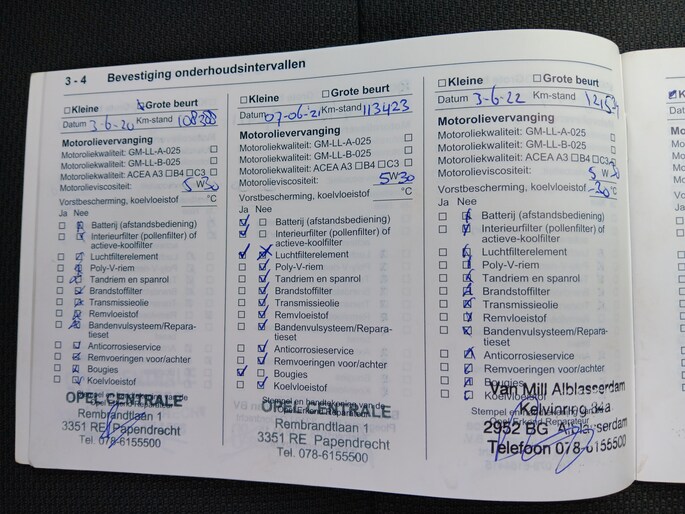 3 - 4 Bevestiging onderhoudsintervallen
Kleine Grote beurt
Datum 3-6-20 Km-stand
Motorolievervanging
Motoroliekwaliteit: GM-LL-A-025
Motoroliekwaliteit: GM-LL-B-025
Motoroliekwaliteit: ACEA A3 B4 C3
Motorolieviscositeit: 5 W 30
Vorstbescherming, koelvloeistof °C
Ja Nee
Batterij (afstandsbediening)
Interieurfilter (pollenfilter) of
actieve-koolfilter
Luchtfilterelement
Poly-V-riem
Tandriem en spanrol
Brandstoffilter
Transmissieolie
Remvloeistof
Bandenvulsysteem/Repara-
tieset
Anticorrosieservice
Remvoeringen voor/achter
Bougies
Koelvloeistof
OPEL CENTRALE
Rembrandtlaan 1
3351 RE Papendrecht
Tel. 078-6155500
Kleine Grote beurt
Datum 07-06-21 Km-stand 113423
Motorolievervanging
Motoroliekwaliteit: GM-LL-A-025
Motoroliekwaliteit: GM-LL-B-025
Motoroliekwaliteit: ACEA A3 B4 C3
Motorolieviscositeit: 5 W 30
Vorstbescherming, koelvloeistof °C
Ja Nee
Batterij (afstandsbediening)
Interieurfilter (pollenfilter) of
actieve-koolfilter
Luchtfilterelement
Poly-V-riem
Tandriem en spanrol
Brandstoffilter
Transmissieolie
Remvloeistof
Bandenvulsysteem/Repara-
tieset
Anticorrosieservice
Remvoeringen voor/achter
Bougies
Koelvloeistof
Stempel en handtekening van de
OPEL CENTRALE
Rembrandtlaan 1
3351 RE Papendrecht
Tel. 078-6155500
Kleine Grote beurt
Datum 3-6-22 Km-stand
Motorolievervanging
Motoroliekwaliteit: GM-LL-A-025
Motoroliekwaliteit: GM-LL-B-025
Motoroliekwaliteit: ACEA A3 B4 C3
Motorolieviscositeit: 5 W 30
Vorstbescherming, koelvloeistof -30 °C
Ja Nee
Batterij (afstandsbediening)
Interieurfilter (pollenfilter) of
actieve-koolfilter
Luchtfilterelement
Poly-V-riem
Tandriem en spanrol
Brandstoffilter
Transmissieolie
Remvloeistof
Bandenvulsysteem/Repara-
tieset
Anticorrosieservice
Remvoeringen voor/achter
Bougies
Koelvloeistof
Stempel en handtekening
Opel Erkend Reparateur
Van Mill Alblasserdam
Kelvinring
2952 BG Alblasserdam
Telefoon 078-6155500